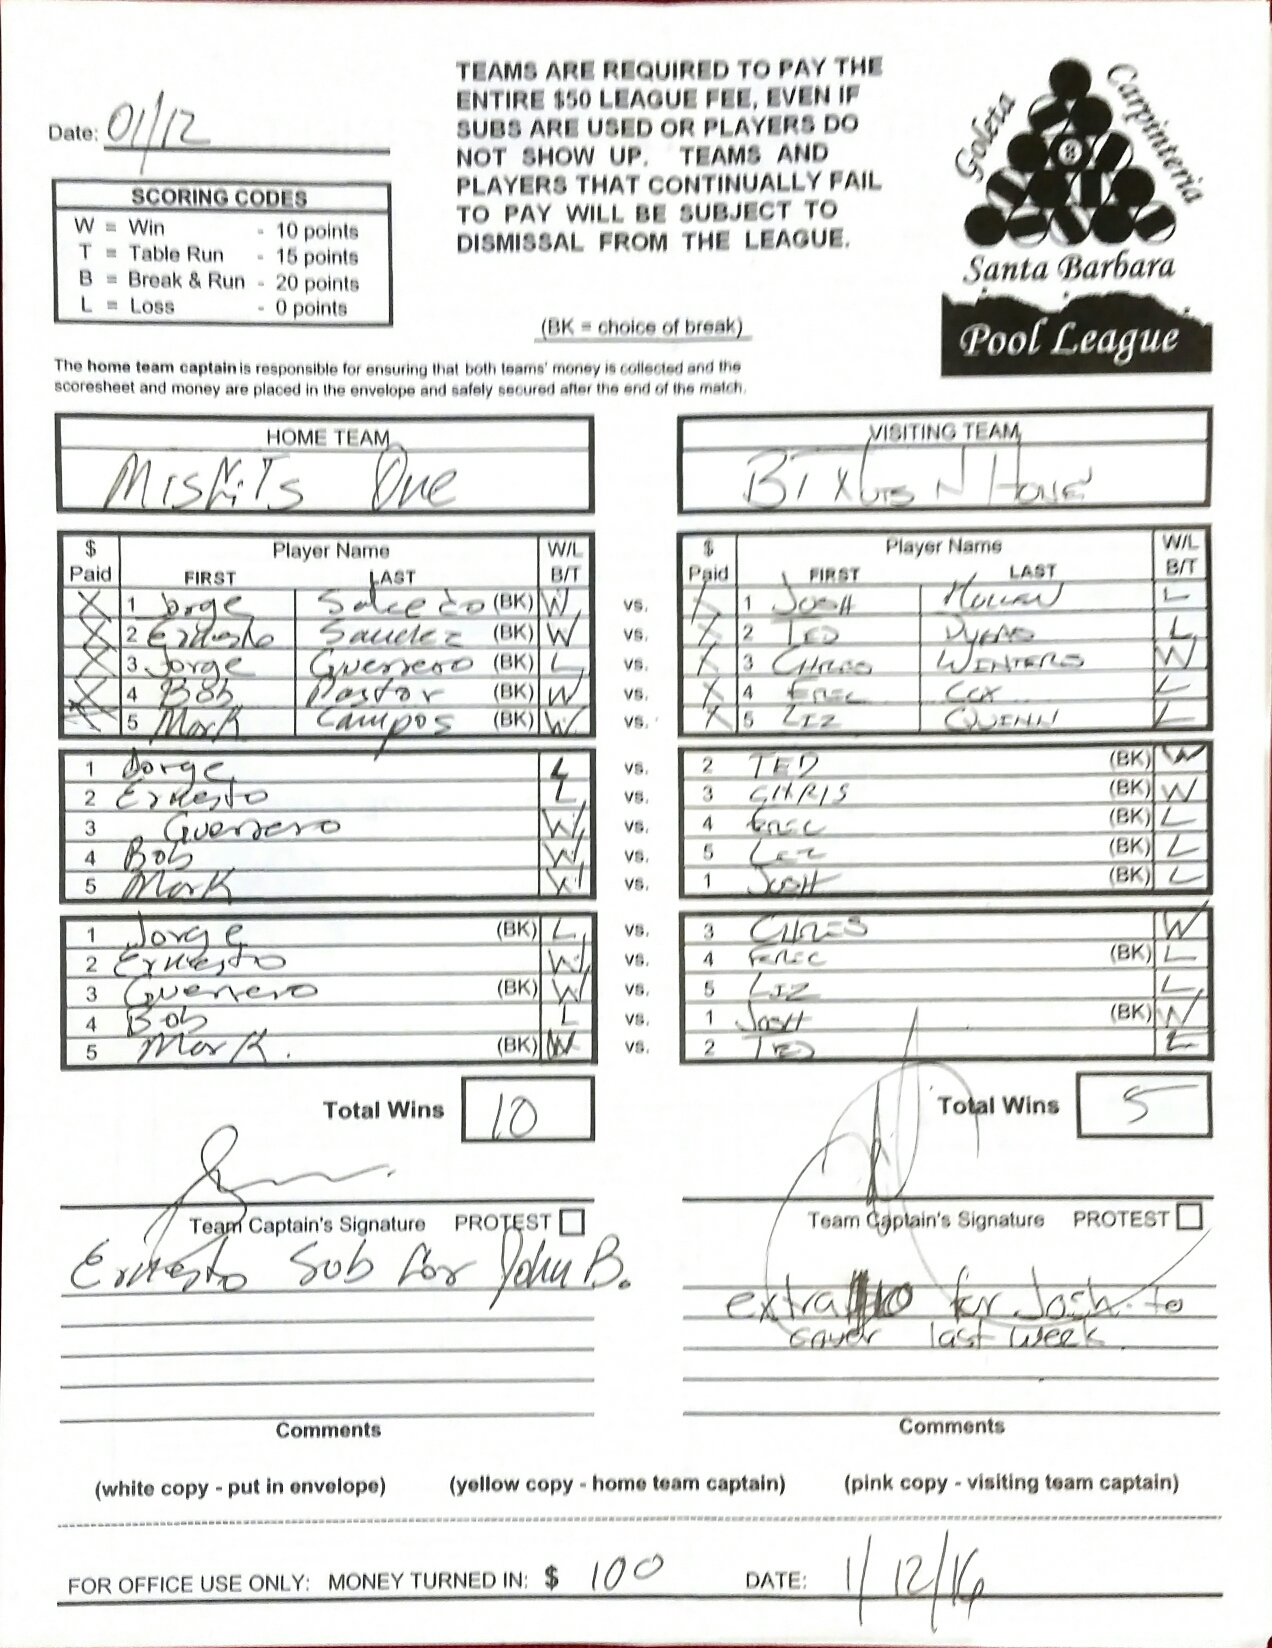 Date: 01/12
TEAMS ARE REQUIRED TO PAY THE
ENTIRE $50 LEAGUE FEE, EVEN IF
SUBS ARE USED OR PLAYERS DO
NOT SHOW UP. TEAMS AND
PLAYERS THAT CONTINUALLY FAIL
TO PAY WILL BE SUBJECT TO
DISMISSAL FROM THE LEAGUE.
Goleta
Carpinteria
8
Santa Barbara
Pool League
SCORING CODES
W = Win - 10 points
T = Table Run - 15 points
B = Break & Run - 20 points
L = Loss - 0 points
(BK = choice of break)
The home team captain is responsible for ensuring that both teams' money is collected and the
scoresheet and money are placed in the envelope and safely secured after the end of the match.
HOME TEAM VISITING TEAM
Misfits One N
$ Player Name W/L $ Player Name W/L
Paid FIRST LAST B/T Paid FIRST LAST B/T
X 1 Jorge Salcedo (BK) W vs. X 1 JOSH L
X 2 Ernesto (BK) W vs. X 2 TED L
X 3 Jorge Guerrero (BK) L vs. X 3 CHRIS WINTERS W
X 4 Bob Pastor (BK) W vs. X 4 ERIC COX L
X 5 Mark Campos (BK) W vs. X 5 LIZ QUINN L
1 Jorge L vs. 2 TED (BK) W
2 Ernesto L vs. 3 CHRIS (BK) W
3 Guerrero W vs. 4 ERIC (BK) L
4 Bob W vs. 5 LIZ (BK) L
5 Mark W vs. 1 JOSH (BK) L
1 Jorge (BK) L vs. 3 CHRIS W
2 Ernesto W vs. 4 ERIC (BK) L
3 Guerrero (BK) W vs. 5 LIZ L
4 Bob L vs. 1 JOSH (BK) W
5 Mark. (BK) W vs. 2 TED L
Total Wins 10 Total Wins 5
Team Captain's Signature PROTEST Team Captain's Signature PROTEST
Ernesto Sub for John B.
extra 10 for Josh to
cover last week
Comments Comments
(white copy - put in envelope) (yellow copy - home team captain) (pink copy - visiting team captain)
FOR OFFICE USE ONLY: MONEY TURNED IN: $ 100 DATE: 1/12/16